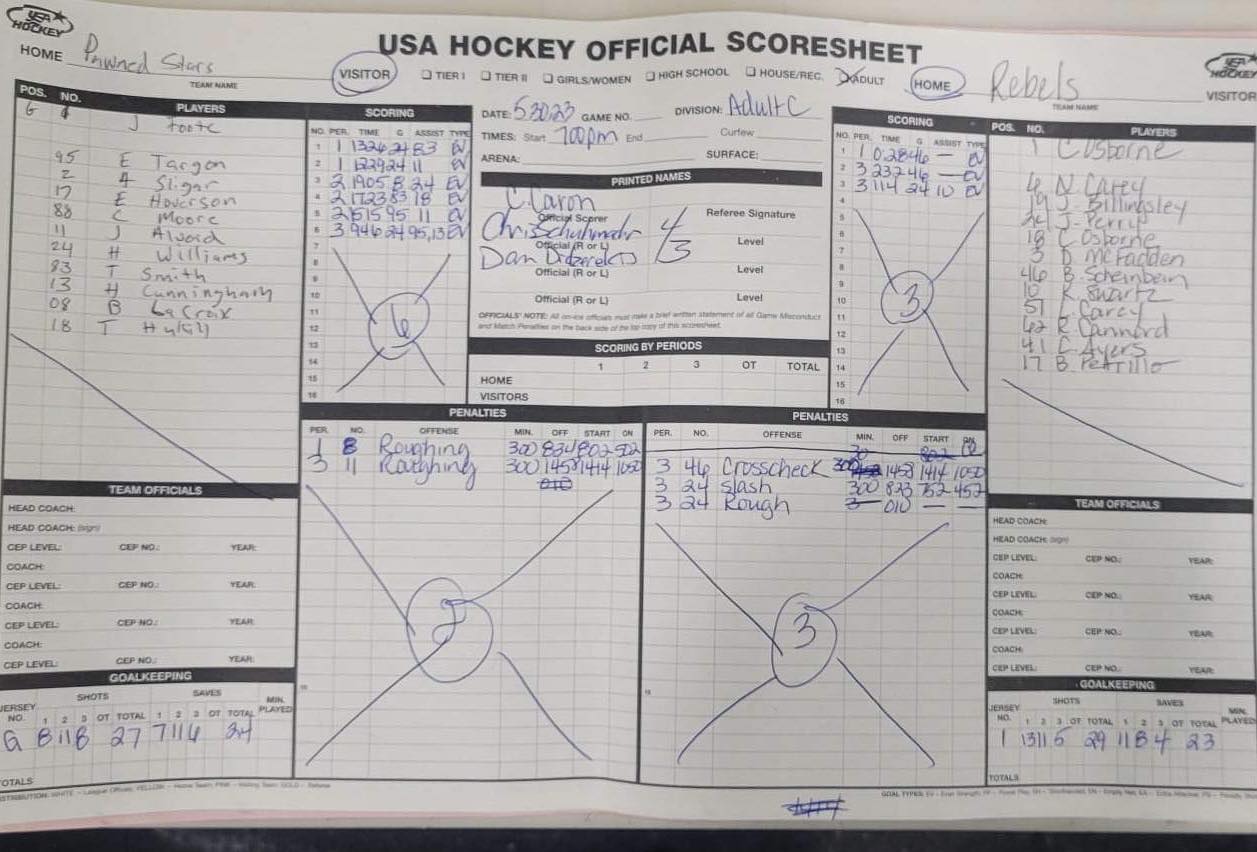 USA HOCKEY
USA HOCKEY OFFICIAL SCORESHEET
USA HOCKEY
HOME Pawned Stars VISITOR
TEAM NAME
☐ TIER I ☐ TIER II ☐ GIRLS/WOMEN ☐ HIGH SCHOOL ☐ HOUSE/REC. ADULT
HOME Rebels VISITOR
TEAM NAME
POS. NO. PLAYERS
G J Foote
95 E Targon
2 A Sligar
17 E Hoverson
88 C Moore
11 J Alvord
24 H Williams
83 T Smith
13 H Cunningham
08 B LaCroix
18 T
SCORING
NO. PER. TIME G ASSIST TYPE
1 1 1326 24 83 EV
2 1 1229 24 11 EV
3 2 1905 8 24 EV
4 2 1723 83 18 EV
5 2 1515 95 11 EV
6 3 946 24 95,13 EV
7
8
9
10
11
12
13
14
15
16
6
DATE: 5.30.23 GAME NO. DIVISION: Adult C
TIMES: Start 700pm End Curfew
ARENA: SURFACE:
PRINTED NAMES
C. Caron
Official Scorer Referee Signature
Chris 4
Official (R or L) Level
Dan 3
Official (R or L) Level
Official (R or L) Level
OFFICIALS' NOTE: All on-ice officials must make a brief written statement of all Game Misconduct
and Match Penalties on the back side of the top copy of this scoresheet.
SCORING BY PERIODS
1 2 3 OT TOTAL
HOME
VISITORS
SCORING
NO. PER. TIME G ASSIST TYPE
1 1 0.28 46 — EV
2 3 237 46 — EV
3 3 114 24 10 EV
4
5
6
7
8
9
10
11
12
13
14
15
16
3
POS. NO. PLAYERS
1 C Osborne
6 N Carey
19 J. Billingsley
24 J. Perry
18 C Osborne
3 D. McFadden
46 B. Scheinbein
10 K. Swartz
51 Carey
62 R. Cannard
41 C Ayers
17 B. Petrillo
PENALTIES
PER. NO. OFFENSE MIN. OFF START ON
1 8 Roughing 300 834 802 502
3 11 Roughing 300 1458 1414 1050
2
PENALTIES
PER. NO. OFFENSE MIN. OFF START ON
3 46 Crosscheck 300 1458 1414 1050
3 24 Slash 300 823 752 452
3 24 Rough 3 010 — —
3
TEAM OFFICIALS
HEAD COACH:
HEAD COACH: (sign)
CEP LEVEL: CEP NO.: YEAR:
COACH:
CEP LEVEL: CEP NO.: YEAR:
COACH:
CEP LEVEL: CEP NO.: YEAR:
COACH:
CEP LEVEL: CEP NO.: YEAR:
GOALKEEPING
JERSEY NO. SHOTS SAVES MIN. PLAYED
1 2 3 OT TOTAL 1 2 3 OT TOTAL
G 8 11 8 27 7 11 6 24
TOTALS
TEAM OFFICIALS
HEAD COACH:
HEAD COACH: (sign)
CEP LEVEL: CEP NO.: YEAR:
COACH:
CEP LEVEL: CEP NO.: YEAR:
COACH:
CEP LEVEL: CEP NO.: YEAR:
COACH:
CEP LEVEL: CEP NO.: YEAR:
GOALKEEPING
JERSEY NO. SHOTS SAVES MIN. PLAYED
1 2 3 OT TOTAL 1 2 3 OT TOTAL
1 13 11 5 29 11 8 4 23
TOTALS